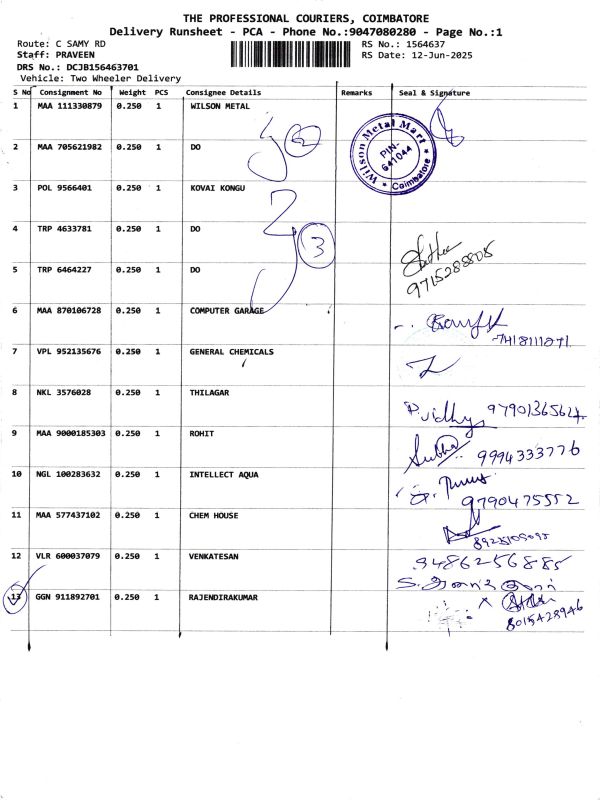 THE PROFESSIONAL COURIERS, COIMBATORE
Delivery Runsheet - PCA - Phone No.:9047080280 - Page No.:1
Route: C SAMY RD
RS No.: 1564637
Staff: PRAVEEN
RS Date: 12-Jun-2025
DRS No.: DCJB156463701
Vehicle: Two Wheeler Delivery
S No Consignment No Weight PCS Consignee Details Remarks Seal & Signature
1 MAA 111330879 0.250 1 WILSON METAL
2
Wilson Metal Mart
PIN-
641044
★ Coimbatore ★
2 MAA 705621982 0.250 1 DO
3 POL 9566401 0.250 1 KOVAI KONGU
4 TRP 4633781 0.250 1 DO
3
5 TRP 6464227 0.250 1 DO
9715288805
6 MAA 870106728 0.250 1 COMPUTER GARAGE
7418111871
7 VPL 952135676 0.250 1 GENERAL CHEMICALS
8 NKL 3576028 0.250 1 THILAGAR
P. vidhya
9 MAA 9000185303 0.250 1 ROHIT
Subha 9994333776
10 NGL 100283632 0.250 1 INTELLECT AQUA
9790475552
11 MAA 577437102 0.250 1 CHEM HOUSE
12 VLR 600037079 0.250 1 VENKATESAN
9486256885
13 GGN 911892701 0.250 1 RAJENDIRAKUMAR
8015428946